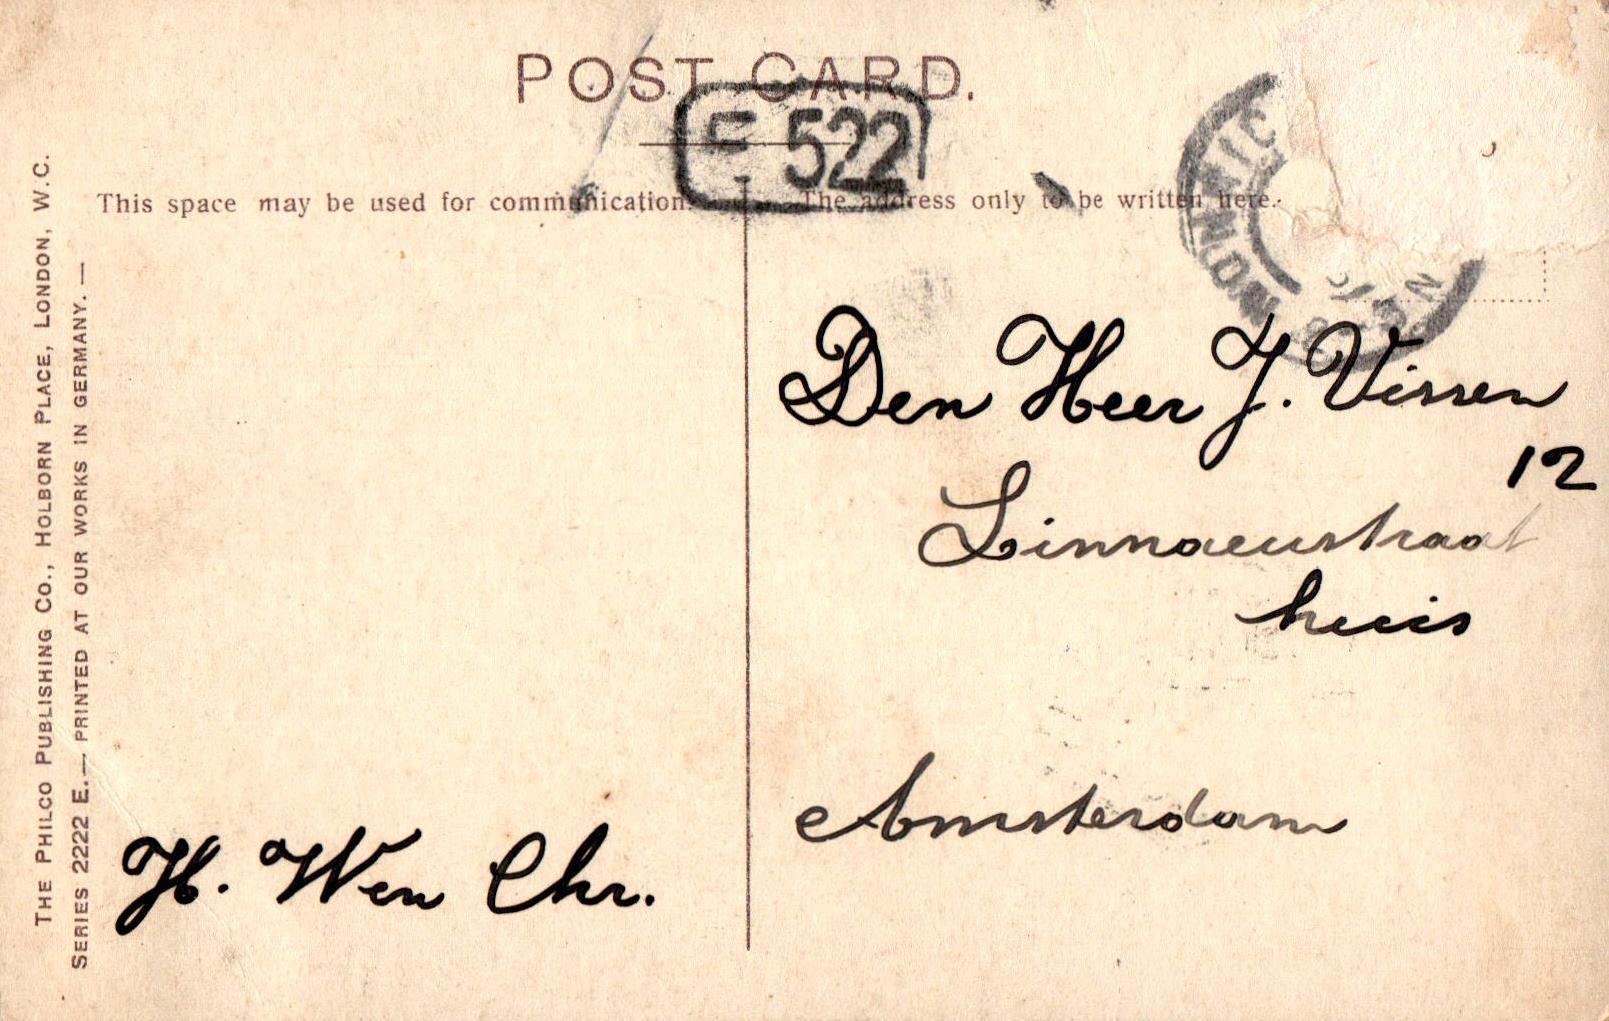 POST CARD.
E 522
This space may be used for communication.
The address only to be written here.
Den Heer J. Vissen
12
Linnaeustraat
huis
Amsterdam
H. Wen Chr.
THE PHILCO PUBLISHING CO., HOLBORN PLACE, LONDON, W.C.
SERIES 2222 E.— PRINTED AT OUR WORKS IN GERMANY. —